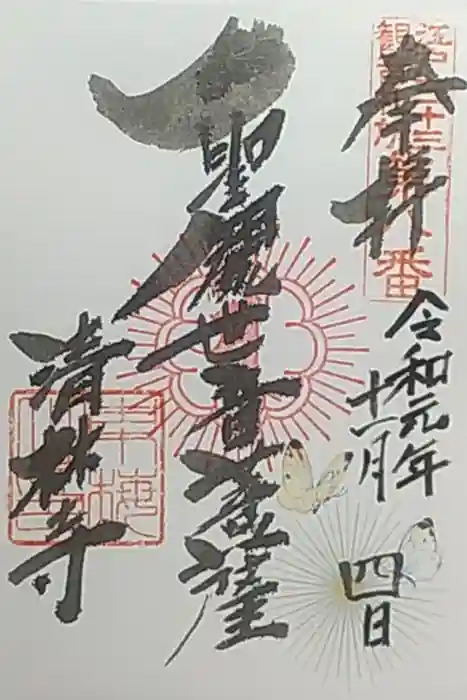 奉拝
江戸三十三
観音札所第八番
令和元年
十一月
四日
聖観世音菩薩
清林寺